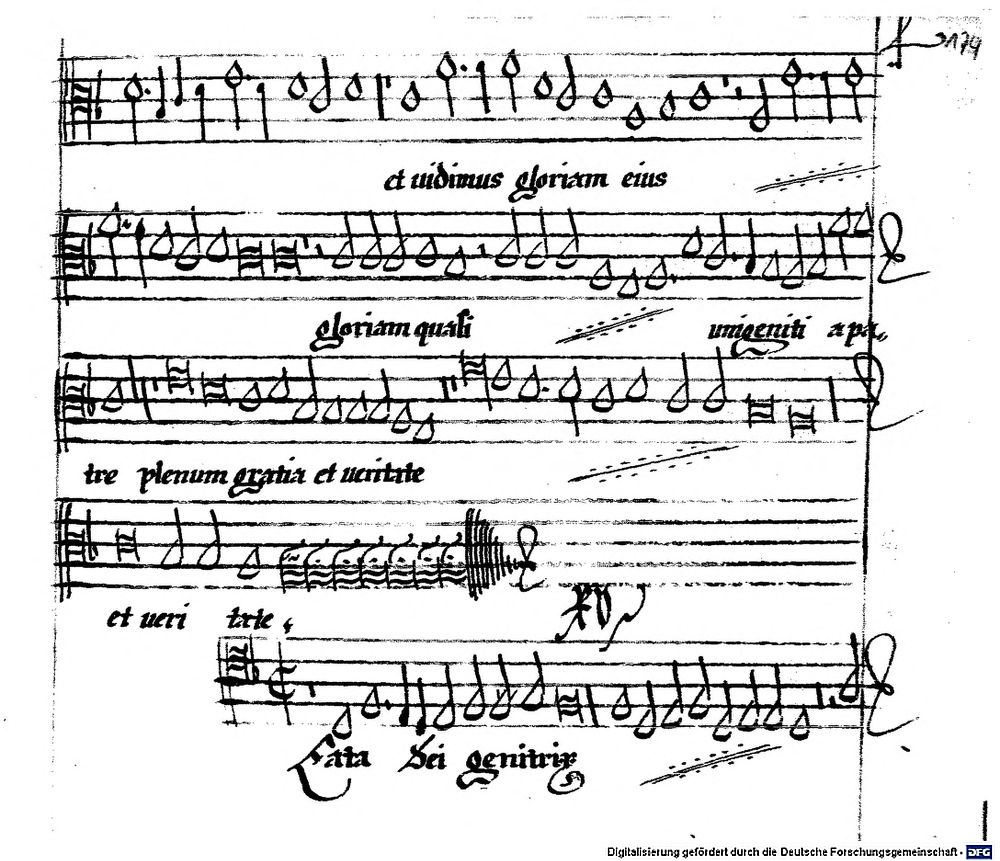 179
et uidimus gloriam eius
gloriam quasi unigeniti a pa„
tre plenum gratia et ueritate
et ueri tate
xv
Eata Dei genitrix
Digitalisierung gefördert durch die Deutsche Forschungsgemeinschaft - DFG